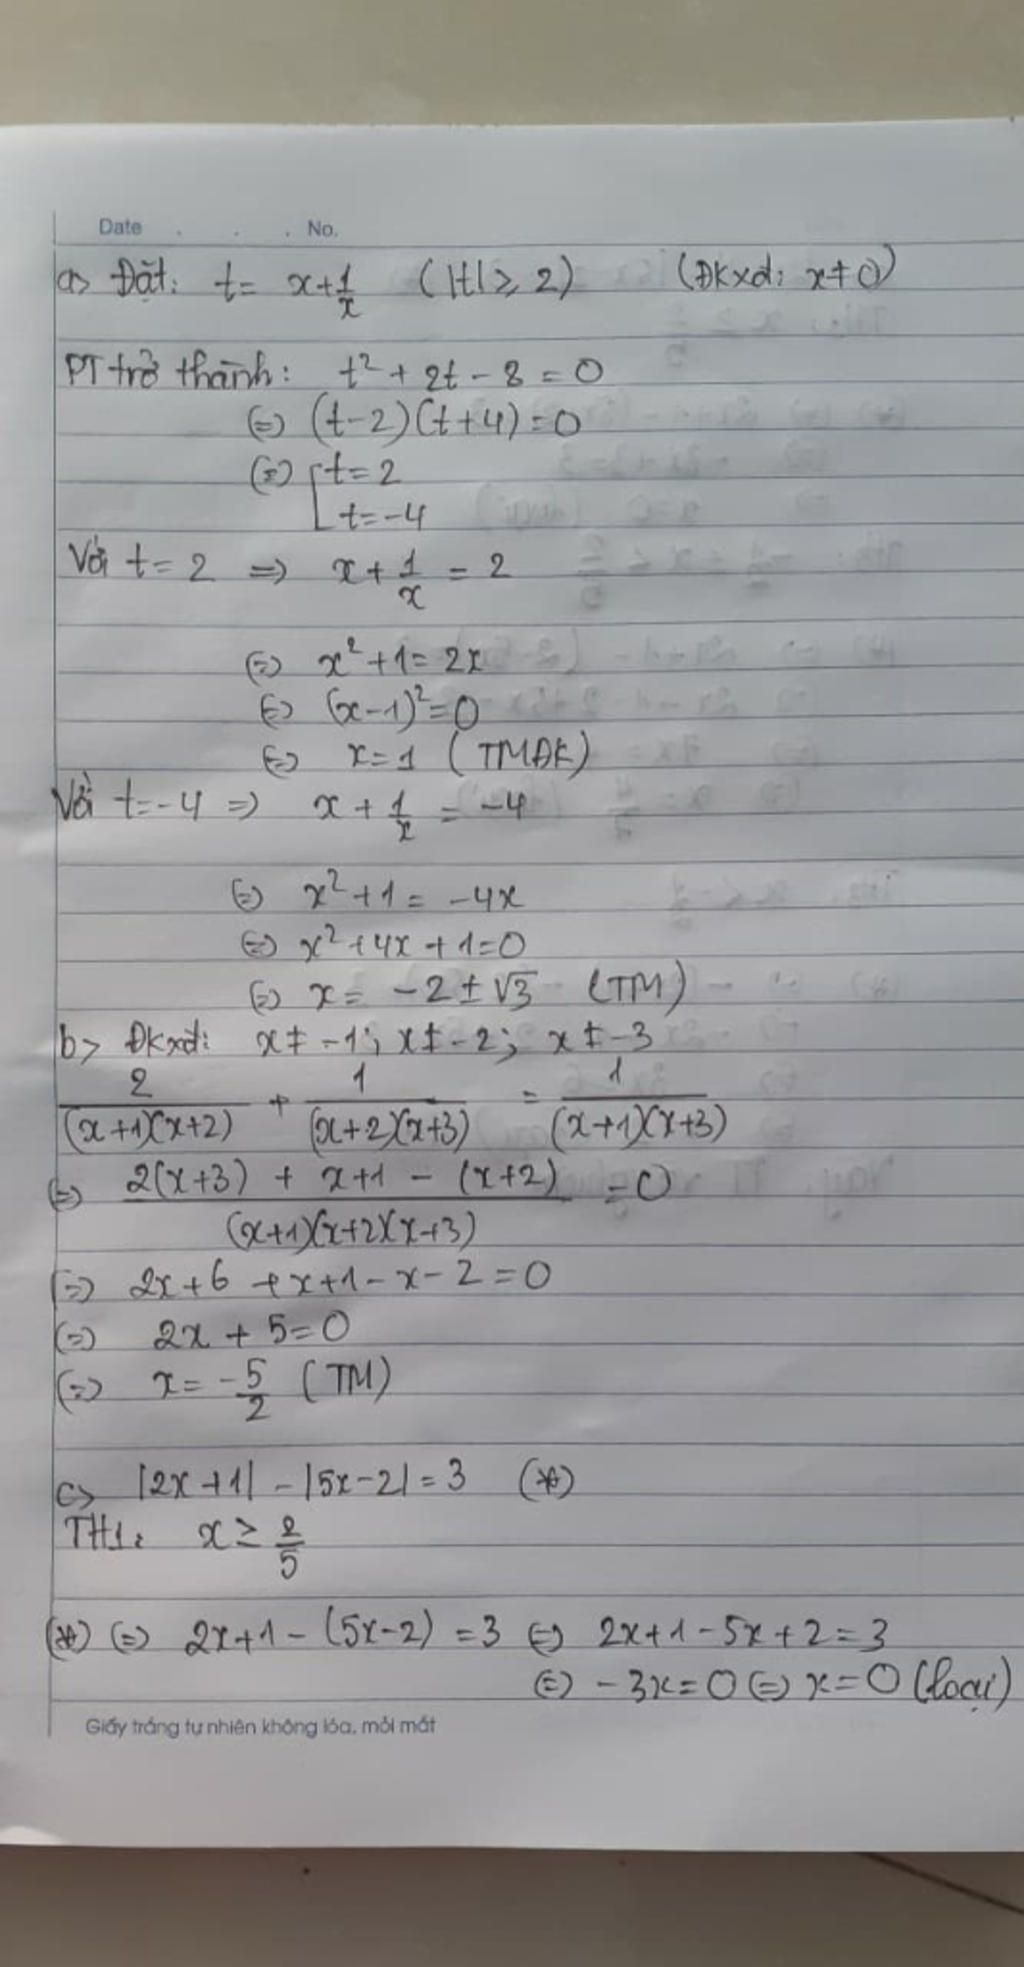 Date . . . No.
a> Đặt: t = x + 1/x (|t| ≥ 2) (ĐKxđ: x ≠ 0)
PT trở thành: t² + 2t - 8 = 0
(=) (t-2)(t+4) = 0
(=) [t = 2
t = -4
Với t = 2 => x + 1/x = 2
(=) x² + 1 = 2x
(=) (x-1)² = 0
(=) x = 1 (TMĐK)
Với t = -4 => x + 1/x = -4
(=) x² + 1 = -4x
(=) x² + 4x + 1 = 0
(=) x = -2 ± √3 (TM)
b> ĐKxđ: x ≠ -1; x ≠ -2; x ≠ -3
2/((x+1)(x+2)) + 1/((x+2)(x+3)) = 1/((x+1)(x+3))
(=) (2(x+3) + x+1 - (x+2))/((x+1)(x+2)(x+3)) = 0
(=) 2x + 6 + x + 1 - x - 2 = 0
(=) 2x + 5 = 0
(=) x = -5/2 (TM)
c> |2x+1| - |5x-2| = 3 (*)
TH1: x ≥ 2/5
(*) (=) 2x+1 - (5x-2) = 3 (=) 2x+1-5x+2 = 3
(=) -3x = 0 (=) x = 0 (loại)
Giấy trắng tự nhiên không lóa, mỏi mắt